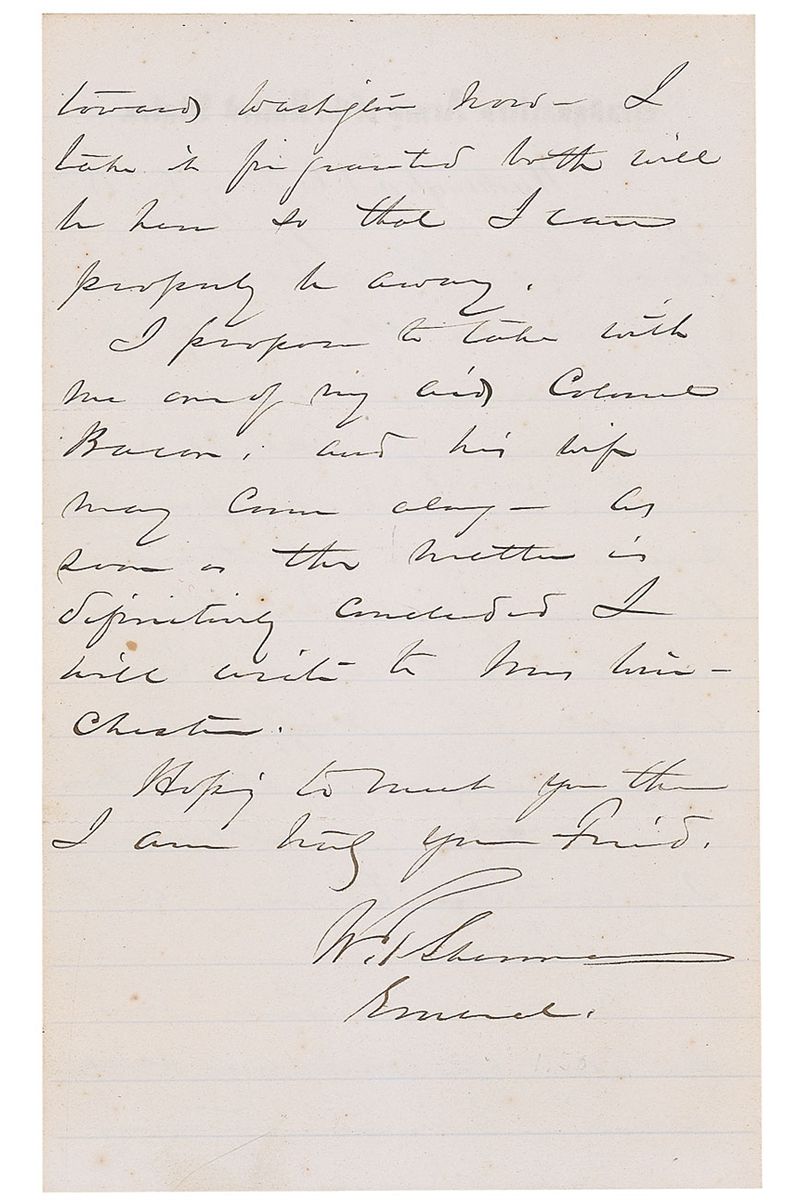 towards Washington now - I
take it for granted both will
be here so that I can
properly be away.
I propose to take with
me one of my aids Colonel
Bacon, and his wife
may come along - As
soon as this matter is
definitively concluded I
will write to Mrs Win-
chester.
Hoping to meet you then
I am truly your Friend.
W. T. Sherman